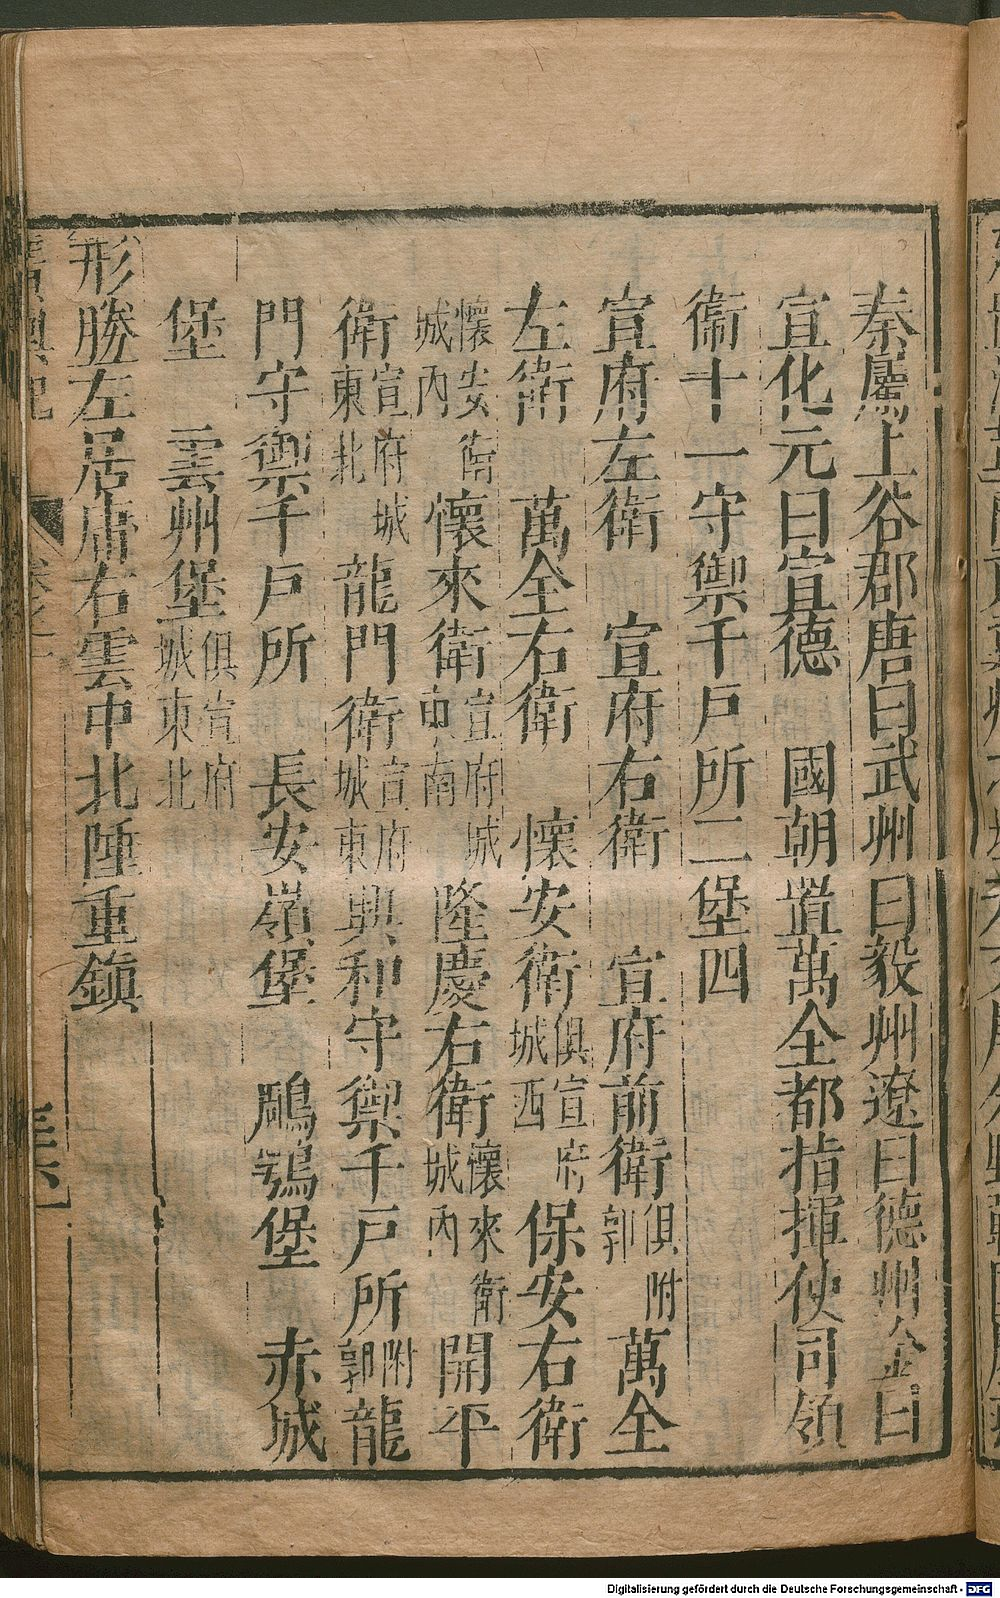 秦屬上谷郡唐曰武州曰毅州遼曰德州金曰
宣化元曰宣德 國朝置萬全都指揮使司領
衛十一守禦千戶所二堡四
宣府左衛 宣府右衛 宣府前衛俱附郭 萬全
左衛 萬全右衛 懷安衛俱宣府城西 保安右衛
懷安衛城內 懷來衛宣府城東南 隆慶右衛懷來衛城內 開平
衛宣府城東北 龍門衛宣府城東 興和守禦千戶所附郭 龍
門守禦千戶所 長安嶺堡 鵰鶚堡 赤城
堡 雲州堡俱宣府城東北
形勝左居庸右雲中北陲重鎮
卷之一
三六
Digitalisierung gefördert durch die Deutsche Forschungsgemeinschaft - DFG